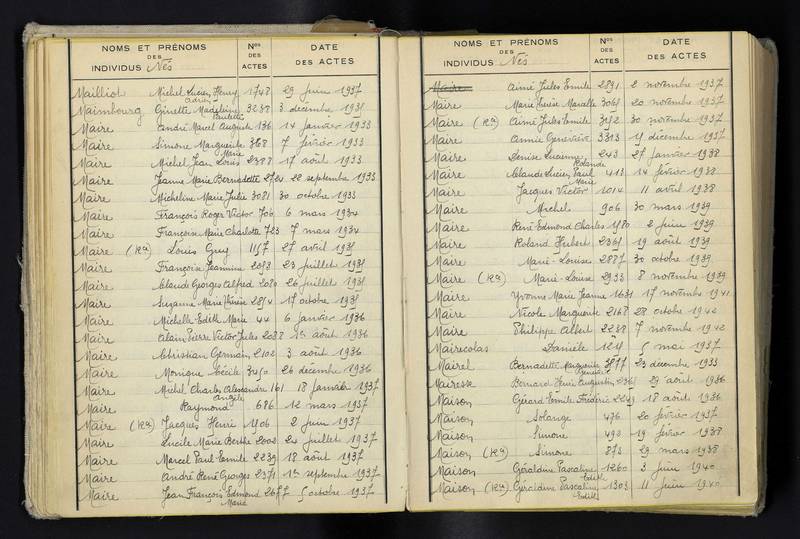 NOMS ET PRÉNOMS
DES
INDIVIDUS Nés
Nos
DES
ACTES
DATE
DES ACTES
Mailliot Michel Lucien Henry 1748 29 juin 1937
Adrien
Maimbourg Ginette Madeleine 3238 3 décembre 1935
Paulette
Maire André Marcel Auguste 136 14 janvier 1933
Maire Simone Marguerite 368 7 février 1933
Marie
Maire Michel Jean Louis 2388 17 août 1933
Maire Jeanne Marie Bernadette 2724 22 septembre 1933
Maire Micheline Marie Julie 3081 30 octobre 1933
Maire François Roger Victor 706 6 mars 1934
Maire Françoise Marie Charlotte 723 7 mars 1934
Maire (Ra) Louis Guy 1157 27 avril 1935
Maire Françoise Jeannine 2053 23 juillet 1935
Maire Claude Georges Alfred 2080 26 juillet 1935
Maire Suzanne Marie Thérèse 2854 17 octobre 1935
Maire Michelle Edith Marie 44 6 janvier 1936
Maire Alain Pierre Victor Jules 2088 1er août 1936
Maire Christian Germain 2102 3 août 1936
Maire Monique Cécile 3450 26 décembre 1936
Maire Michel Charles Alexandre 161 18 janvier 1937
Angèle
Maire Raymond 686 12 mars 1937
Maire (Ra) Jacques Henri 1506 2 juin 1937
Maire Lucile Marie Berthe 2002 24 juillet 1937
Maire Marcel Paul Emile 2239 18 août 1937
Maire André René Georges 2371 1er septembre 1937
Maire Jean François Edmond 2677 5 octobre 1937
Marie
NOMS ET PRÉNOMS
DES
INDIVIDUS Nés
Nos
DES
ACTES
DATE
DES ACTES
Maire Aimé Jules Emile 2891 2 novembre 1937
Maire Marie Thérèse 3065 20 novembre 1937
Maire (Ra) Aimé Jules Emile 3152 30 novembre 1937
Maire Annie Geneviève 3313 décembre 1937
Maire Denise Lucienne 243 27 janvier 1938
Rolande
Maire Claude Lucien Paul 413 14 février 1938
Marie
Maire Jacques Victor 1014 11 avril 1938
Maire Michel 906 30 mars 1939
Maire René Edmond Charles 1580 2 juin 1939
Maire Roland Hubert 2365 19 août 1939
Maire Marie-Louise 2887 30 octobre 1939
Maire (Ra) Marie-Louise 2933 8 novembre 1939
Maire Yvonne Marie Jeanne 1631 17 novembre 1941
Maire Nicole Marguerite 2168 28 octobre 1942
Maire Philippe Albert 2238 7 novembre 1942
Mairecolas Danièle 5 mai 1937
Mairel Bernadette Marguerite 3577 23 décembre 1933
Mairesse Bernard Henri Augustin 2361 29 août 1936
Maison Gérard Emile Frédéric 2249 18 août 1936
Maison Solange 476 20 février 1937
Maison Simone 493 19 février 1938
Maison (Ra) Simone 873 29 mars 1938
Maison Géraldine Pascaline 1260 3 juin 1940
Edith
Maison (Ra) Géraldine Pascaline 1303 11 juin 1940
Edith